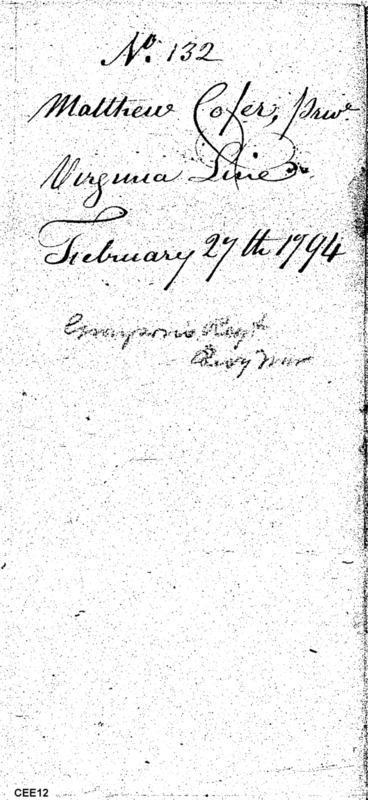 No. 132
Matthew Cofer, Prive
Virginia Line
February 27th 1794
Grayson's Regt
Revy War
CEE12